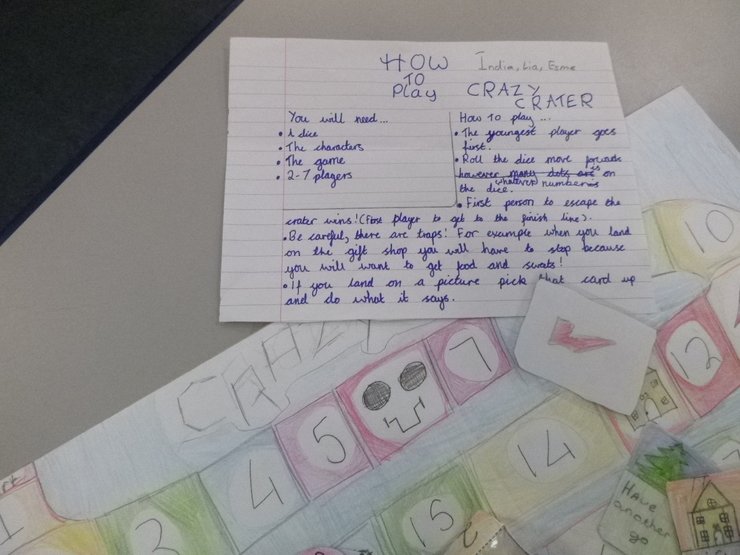 HOW
TO
Play
India, Lia, Esme
CRAZY
CRATER
You will need...
• 1 dice
• The characters
• The game
• 2-7 players
How To play ...
• The youngest player goes
first.
• Roll the dice move forwards
however many dots are on
whatever number is
the dice.
• First person to escape the
crater wins! (First player to get to the finish line).
• Be careful, there are traps! For example when you land
on the gift shop you will have to stop because
you will want to get food and sweets!
• If you land on a picture pick that card up
and do what it says.
10
CRAZY
7
12
5
4
14
1
3
15
Have
another
go